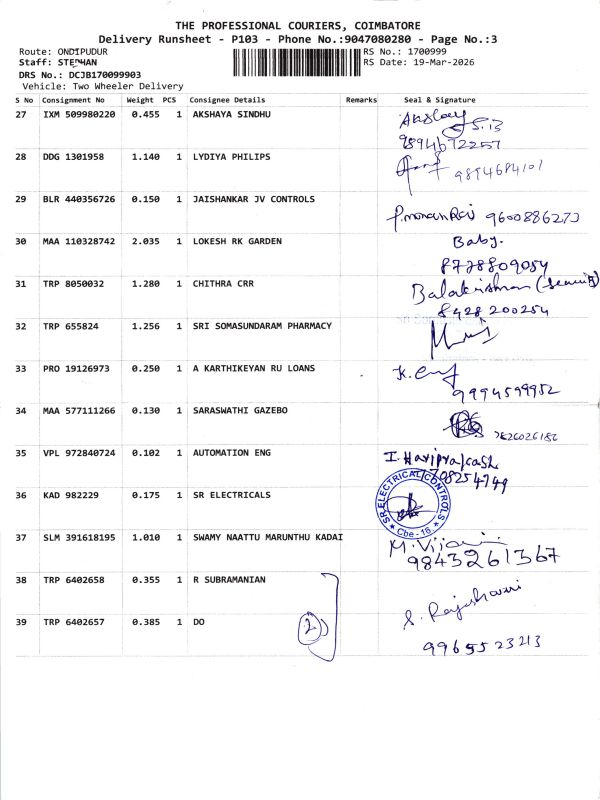 THE PROFESSIONAL COURIERS, COIMBATORE
Delivery Runsheet - P103 - Phone No.:9047080280 - Page No.:3
Route: ONDIPUDUR
RS No.: 1700999
Staff: STEPHAN
RS Date: 19-Mar-2026
DRS No.: DCJB170099903
Vehicle: Two Wheeler Delivery
S No Consignment No Weight PCS Consignee Details Remarks Seal & Signature
27 IXM 509980220 0.455 1 AKSHAYA SINDHU Akshay S.B
9894672257
28 DDG 1301958 1.140 1 LYDIYA PHILIPS
9894684101
29 BLR 440356726 0.150 1 JAISHANKAR JV CONTROLS
9600886273
30 MAA 110328742 2.035 1 LOKESH RK GARDEN Baby.
8778809054
31 TRP 8050032 1.280 1 CHITHRA CRR Balakrishnan
8428200254
32 TRP 655824 1.256 1 SRI SOMASUNDARAM PHARMACY
33 PRO 19126973 0.250 1 A KARTHIKEYAN RU LOANS
9994599952
34 MAA 577111266 0.130 1 SARASWATHI GAZEBO
35 VPL 972840724 0.102 1 AUTOMATION ENG I. Hariprakash
7708254749
36 KAD 982229 0.175 1 SR ELECTRICALS SR ELECTRICAL CONTROLS
Cbe - 16.
37 SLM 391618195 1.010 1 SWAMY NAATTU MARUNTHU KADAI
9843261367
38 TRP 6402658 0.355 1 R SUBRAMANIAN S. Rajeshwari
39 TRP 6402657 0.385 1 DO 2
9965523213